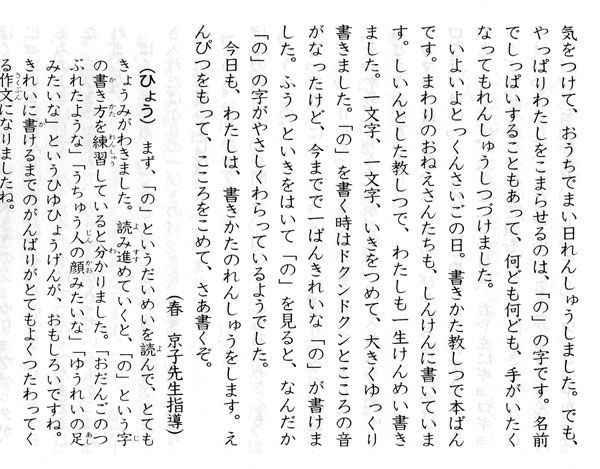 気をつけて、おうちでまい日れんしゅうしました。でも、
やっぱりわたしをこまらせるのは、「の」の字です。名前
でしっぱいすることもあって、何ども何ども、手がいたく
なってもれんしゅうしつづけました。
いよいよとっくんさいごの日。書きかた教しつで本ばん
です。まわりのおねえさんたちも、しんけんに書いていま
す。しいんとした教しつで、わたしも一生けんめい書き
ました。一文字、一文字、いきをつめて、大きくゆっくり
書きました。「の」を書く時はドクンドクンとこころの音
がなったけど、今までで一ばんきれいな「の」が書けま
した。ふうっといきをはいて「の」を見ると、なんだか
「の」の字がやさしくわらっているようでした。
今日も、わたしは、書きかたのれんしゅうをします。え
んぴつをもって、こころをこめて、さあ書くぞ。
（春 京子先生指導）
（ひょう） まず、「の」というだいめいを読んで、とても
きょうみがわきました。読み進めていくと、「の」という字
の書き方を練習していると分かりました。「おだんごのつ
ぶれたような」「うちゅう人の顔みたいな」「ゆうれいの足
みたいな」というひゆひょうげんが、おもしろいですね。
きれいに書けるまでのがんばりがとてもよくつたわってく
る作文になりましたね。